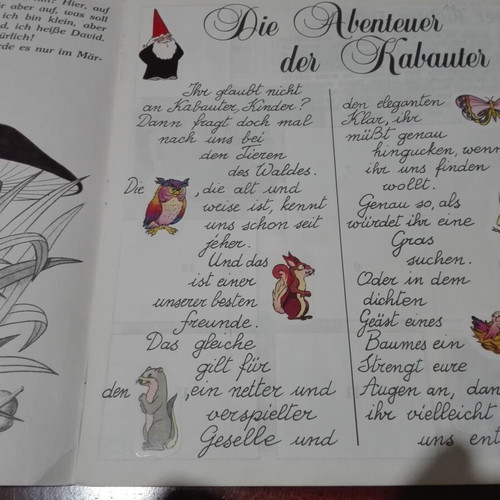 Hier, auf
ir aber auf, was soll
ich bin klein, aber
d, ich heiße David.
türlich!
rde es nur im Mär-
Die Abenteuer
der Kabauter
Ihr glaubt nicht
an Kabauter, Kinder?
Dann fragt doch mal
nach uns bei
den Tieren
des Waldes.
Die , die alt und
weise ist, kennt
uns schon seit
jeher.
Und das
ist einer
unserer besten
Freunde.
Das gleiche
gilt für
den , ein netter und
verspielter
Geselle und
den eleganten
Klar, ihr
müßt genau
hingucken, wenn
ihr uns finden
wollt.
Genau so, als
würdet ihr eine
Gras
suchen.
Oder in dem
dichten
Geäst eines
Baumes ein
Strengt eure
Augen an, dan
ihr vielleicht
uns ent